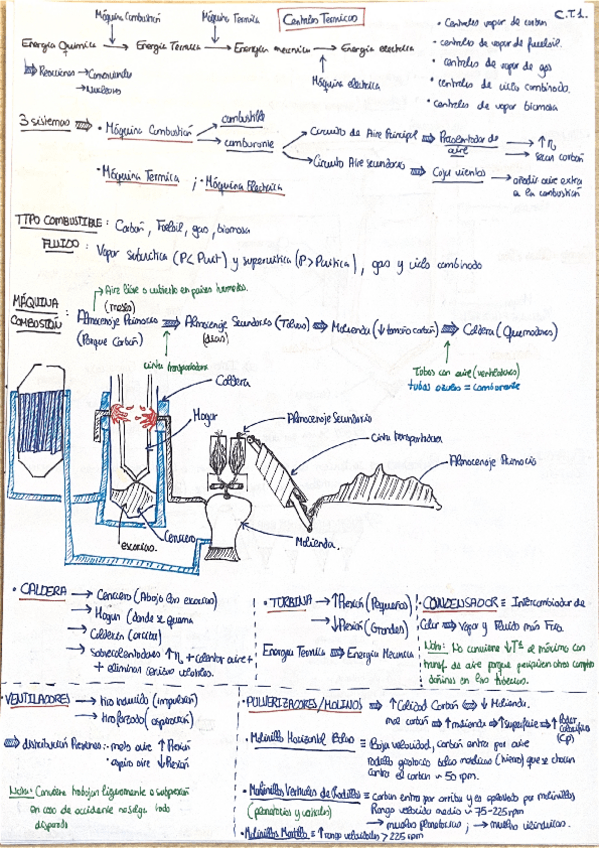 C.T.1.
Centrales Termicas
Máquina Combustión
Máquina Termica
Energia Quimica → Energia Termica → Energia mecanica → Energia electrica
Máquina electrica
Reacciones → Convencionales
→ Nucleares
• Centrales vapor de carbon
• centrales de vapor de fueloil.
• centrales de vapor de gas
• centrales de ciclo combinado.
• centrales vapor biomasa
3 sistemas ⇒ • Máquina Combustión
combustible
comburante
Circuito de Aire Principal ⇒ Precalentador de aire → ↑η
→ secar carbón
Circuito Aire secundario ⇒ Caja vientos → añadir aire extra
a la combustión
• Máquina Termica ; • Máquina Electrica
TIPO COMBUSTIBLE: Carbón, Fueloil, gas, biomasa
FLUIDO: Vapor subcritica (P< Pcrit) y supercritica (P> Pcritica), gas y ciclo combinado
→ Aire libre o cubierto en paises humedos.
MÁQUINA COMBUSTIÓN:
(meses)
Almacenaje Primario ⇒ Almacenaje Secundario (Tolvas) ⇒ Molienda (↓ tamaño carbón) ⇒ Caldera (Quemadores)
(Parque Carbón)
(dias)
cinta transportadora
Tubos con aire (ventiladores)
tubos azules = comburante
Caldera
Hogar
Almacenaje Secundario
Cinta transportadora
Almacenaje Primario
Cenicero
escorias.
Molienda.
• CALDERA → Cenicero (Abajo con escorias)
→ Hogar (donde se quema
→ Calderin (arriba)
→ Sobrecalentadores ↑η + calentar aire +
+ eliminar cenizas volantes.
• TURBINA → ↑Presión (Pequeños)
→ ↓Presión (Grandes)
Energia Termica ⇒ Energia Mecanica
• CONDENSADOR ≡ Intercambiador de
Calor → Vapor y Fluido más Frio.
Nota: No conviene ↓Tª al máximo con
transf. de aire porque
en las tuberias.
• VENTILADORES → tiro inducido (impulsion)
→ tiro forzado (aspiración)
⇒ distribución Presiones: - meto aire ↑ Presión
- aspiro aire ↓ Presión
Nota: Conviene trabajar ligeramente a subpresión
en caso de accidente no salga todo
disparado
• PULVERIZADORES/MOLINOS ⇒ ↑Calidad Carbón ⇔ ↓ Molienda.
mal carbón ⇒ ↑ molienda ⇒ ↑ superficie ⇒ ↑ Poder calorifico
(Cp)
• Molinillo Horizontal Bolas ≡ Baja velocidad, carbón entra por aire
Rodillo giratorio bolas macizas (hierro) que se chocan
contra el carbon ~ 50 rpm.
• Molinillos Verticales de Rodillos ≡ carbón entra por arriba y es aplastado por molinillos
(planetarios y verticales) Rango velocidad medio ~ 75-225 rpm
→ muelas planetarias ; → muelas cilindricas.
• Molinillos Martillo ≡ ↑ rango velocidades > 225 rpm